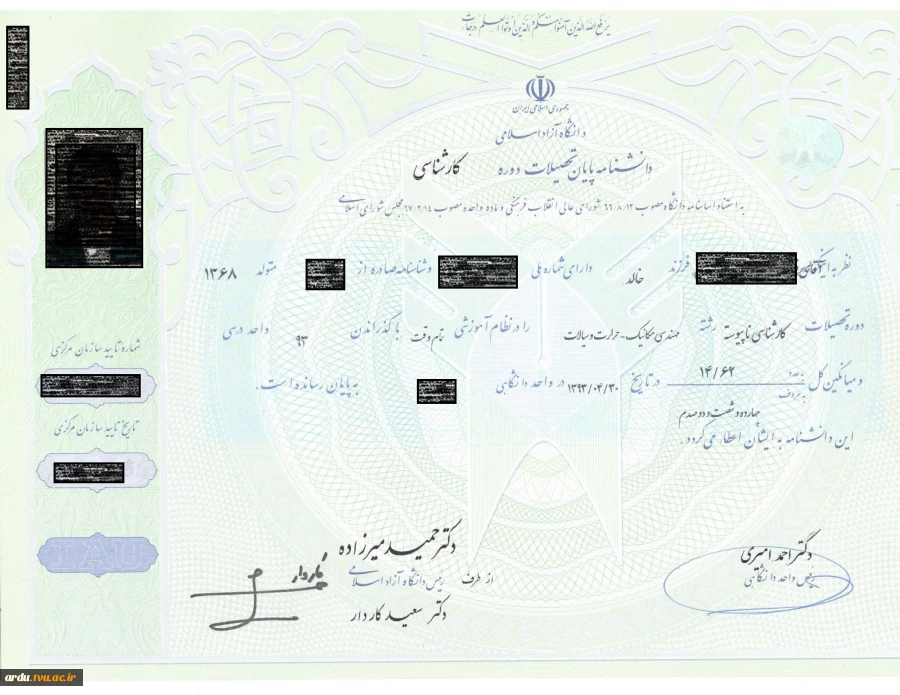 یرفع الله الذین آمنوا منکم و الذین اوتوا العلم درجات
جمهوری اسلامی ایران
دانشگاه آزاد اسلامی
دانشنامه پایان تحصیلات دوره کارشناسی
به استناد اساسنامه دانشگاه مصوب ۶۶/۸/۱۲ شورای عالی انقلاب فرهنگی و ماده واحده مصوب ۶۷/۲/۱۴ مجلس شورای اسلامی
نظر به اینکه آقای فرزند خالد دارای شماره ملی و شناسنامه صادره از متولد ۱۳۶۸
دوره تحصیلات کارشناسی ناپیوسته رشته مهندسی مکانیک - حرارت و سیالات را در نظام آموزشی تمام وقت با گذراندن ۹۳ واحد درسی
و میانگین کل به عدد ۱۴/۶۲ در تاریخ ۱۳۹۳/۰۴/۳۰ در واحد دانشگاهی به پایان رسانده است.
به حروف چهارده و شصت و دو صدم
این دانشنامه به ایشان اعطاء می گردد.
شماره تایید سازمان مرکزی
تاریخ تایید سازمان مرکزی
IAU
دکتر احمد امیری
رئیس واحد دانشگاهی
دکتر حمید میرزاده
از طرف رئیس دانشگاه آزاد اسلامی
دکتر سعید کاردار
ardu.tvu.ac.ir